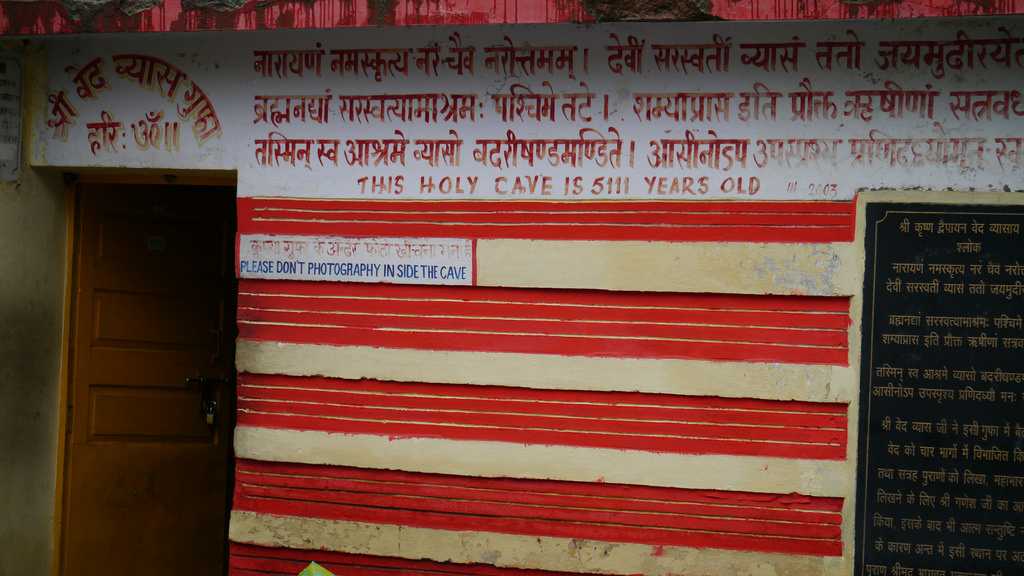 श्री वेद व्यास गुफा
हरिः ॐ॥
नारायणं नमस्कृत्य नरं चैव नरोत्तमम्। देवीं सरस्वतीं व्यासं ततो जयमुदीरयेत
ब्रह्मनद्यां सरस्वत्यामाश्रमः पश्चिमे तटे। शम्याप्रास इति प्रौक्त ऋषीणां सत्रवर्ध
तस्मिन् स्व आश्रमे व्यासो बदरीषण्डमण्डिते। आसीनोऽप उपस्पृश्य प्रणिदध्यौमनः स्व
THIS HOLY CAVE IS 5111 YEARS OLD 2003
कृपया गुफा के अन्दर फोटो खींचना मना है
PLEASE DON'T PHOTOGRAPHY IN SIDE THE CAVE
श्री कृष्ण द्वैपायन वेद व्यासाय
श्लोक
नारायण नमस्कृत्य नरं चैव नरोत्त
देवीं सरस्वतीं व्यासं ततो जयमुदीर
ब्रह्मनद्यां सरस्वत्यामाश्रमः पश्चिमे
शम्याप्रास इति प्रौक्त ऋषीणां सत्रव
तस्मिन् स्व आश्रमे व्यासो बदरीषण्ड
आसीनोऽप उपस्पृश्य प्रणिदध्यौ मनः
श्री वेद व्यास जी ने इसी गुफा में बै
वेद को चार भागों में विभाजित कि
तथा सत्रह पुराणों को लिखा, महाभार
लिखने के लिए श्री गणेश जी का आ
किया, इसके बाद भी आत्म सन्तुष्टि
के कारण अन्त में इसी स्थान पर
पुराण श्रीमद् भागवत